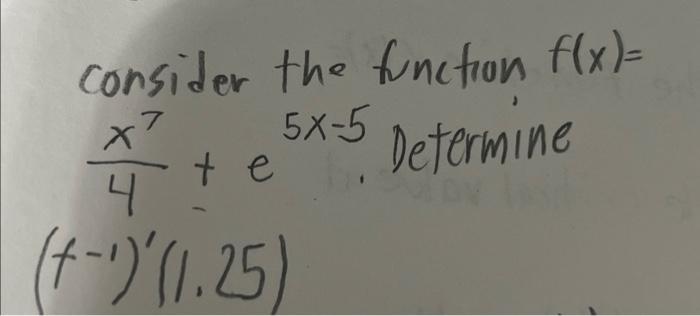 consider the function f(x)=
x^7/4 + e^{5x-5}. Determine
(f^{-1})'(1.25)